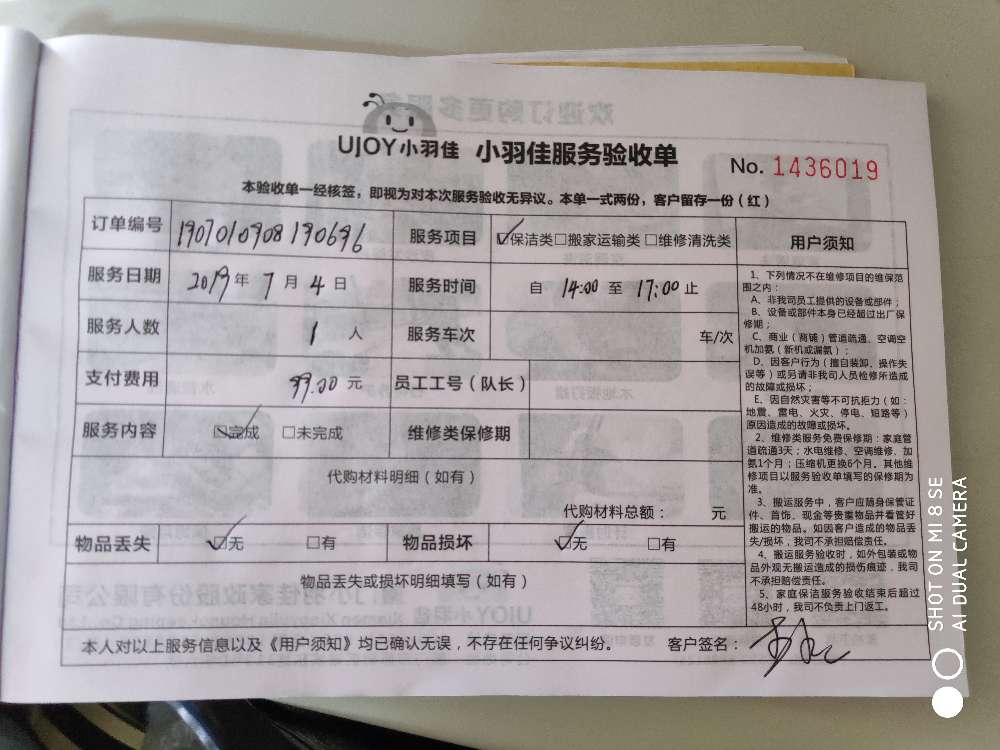 UJOY小羽佳 小羽佳服务验收单
No. 1436019
本验收单一经核签，即视为对本次服务验收无异议。本单一式两份，客户留存一份（红）
订单编号 190701090819 0696
服务项目 ☑保洁类□搬家运输类□维修清洗类
服务日期 2019年 7月 4日
服务时间 自 14:00 至 17:00 止
服务人数 1 人
服务车次 车/次
支付费用 99.00 元
员工工号（队长）
服务内容 ☑完成 □未完成
维修类保修期
代购材料明细（如有）
代购材料总额： 元
物品丢失 ☑无 □有
物品损坏 ☑无 □有
物品丢失或损坏明细填写（如有）
用户须知
1、下列情况不在维修项目的维保范
围之内：
A、非我司员工提供的设备或部件；
B、设备或部件本身已经超过出厂保
修期；
C、商业（商铺）管道疏通、空调空
机加氨（新机或漏氨）；
D、因客户行为（擅自装卸、操作失
误等）或另请非我司人员检修所造成
的故障或损坏；
E、因自然灾害等不可抗力（如：
地震、雷电、火灾、停电、短路等）
原因造成的故障或损坏。
2、维修类服务免费保修期：家庭管
道疏通3天；水电维修、空调维修、加
氨1个月；压缩机更换6个月。其他维
修项目以服务验收单填写的保修期为
准。
3、搬运服务中，客户应随身保管证
件、首饰、现金等贵重物品并看管好
搬运的物品。如因客户造成的物品丢
失/损坏，我司不承担赔偿责任。
4、搬运服务验收时，如外包装或物
品外观无搬运造成的损伤痕迹，我司
不承担赔偿责任。
5、家庭保洁服务验收结束后超过
48小时，我司不负责上门返工。
本人对以上服务信息以及《用户须知》均已确认无误，不存在任何争议纠纷。 客户签名：
SHOT ON MI 8 SE
AI DUAL CAMERA